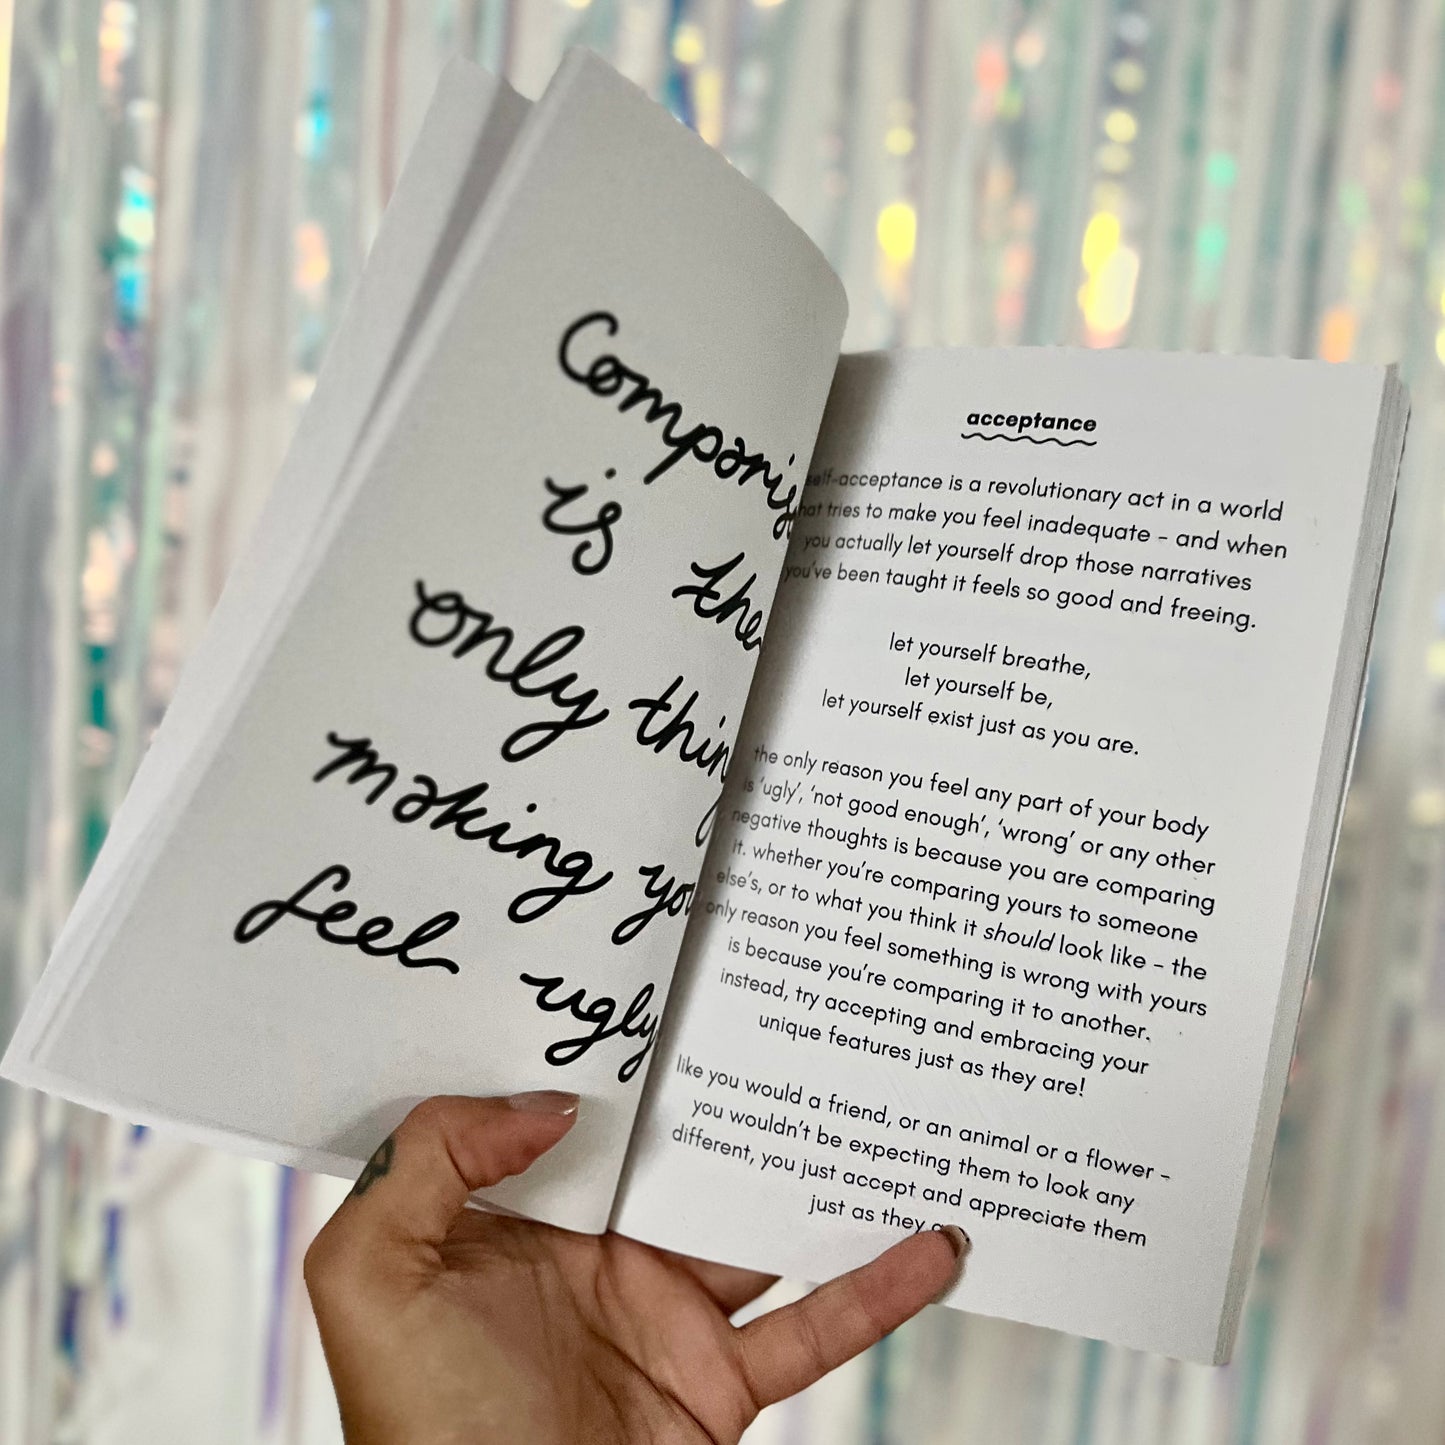 Comparis
is the
only thing
making you
feel ugly
acceptance
self-acceptance is a revolutionary act in a world
that tries to make you feel inadequate - and when
you actually let yourself drop those narratives
you've been taught it feels so good and freeing.
let yourself breathe,
let yourself be,
let yourself exist just as you are.
the only reason you feel any part of your body
is 'ugly', 'not good enough', 'wrong' or any other
negative thoughts is because you are comparing
it. whether you're comparing yours to someone
else's, or to what you think it should look like - the
only reason you feel something is wrong with yours
is because you're comparing it to another.
instead, try accepting and embracing your
unique features just as they are!
like you would a friend, or an animal or a flower -
you wouldn't be expecting them to look any
different, you just accept and appreciate them
just as they